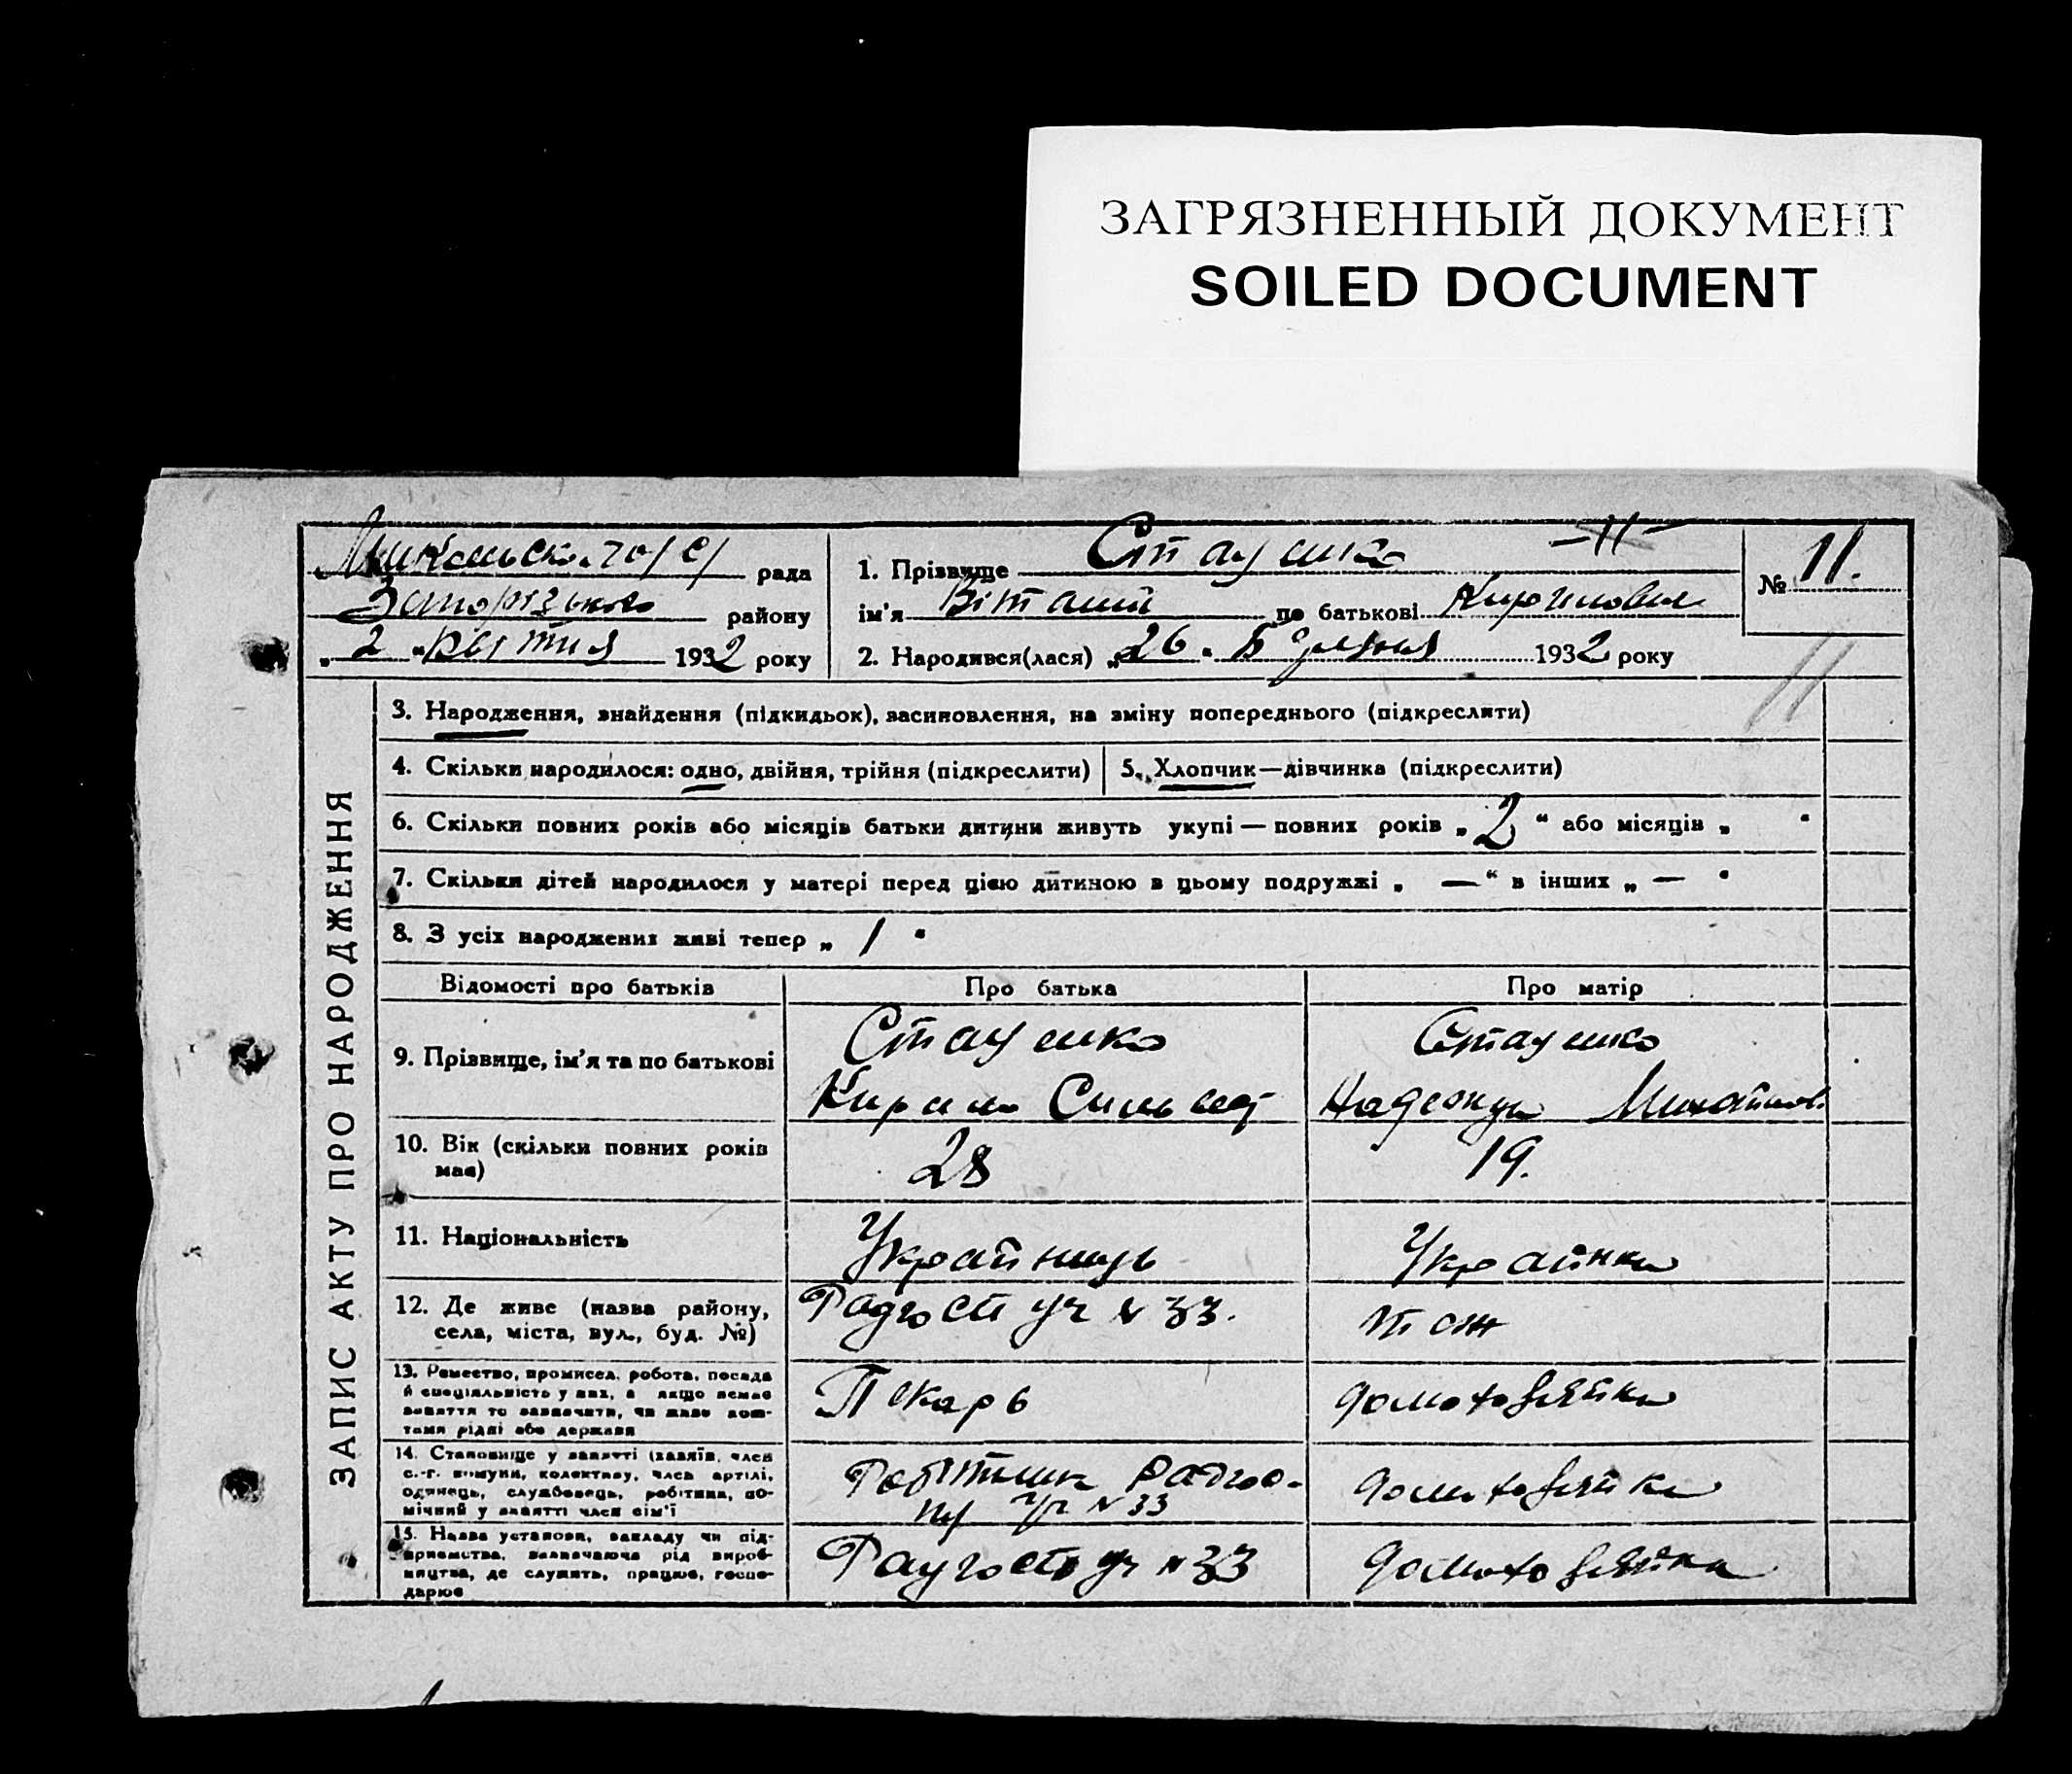 ЗАГРЯЗНЕННЫЙ ДОКУМЕНТ
SOILED DOCUMENT
рада
району
„ 2 “ 1932 року
1. Прізвище
ім'я Віталий по батькові
2. Народився(лася) „ 26 “ 1932 року
№ 11.
11
ЗАПИС АКТУ ПРО НАРОДЖЕННЯ
3. Народження, знайдення (підкидьок), засиновлення, на зміну попереднього (підкреслити)
4. Скільки народилося: одно, двійня, трійня (підкреслити)
5. Хлопчик—дівчинка (підкреслити)
6. Скільки повних років або місяців батьки дитини живуть укупі — повних років „ 2 “ або місяців „ “
7. Скільки дітей народилося у матері перед цією дитиною в цьому подружжі „ — “ в інших „ — “
8. З усіх народжених живі тепер „ 1 “
Відомості про батьків Про батька Про матір
9. Прізвище, ім'я та по батькові
Кирило Надежда
10. Вік (скільки повних років має) 28 19.
11. Національність Українець Українка
12. Де живе (назва району, села, міста, вул., буд. №)
Радгосп уч № 33. тож
13. Ремество, промисел, робота, посада
й спеціяльність у них, а якщо немає
заняття то зазначити, чи живе кош-
тами рідні або держави
Пекарь домохозяйка
14. Становище у занятті (хазяїн, член
с.-г. комуни, колективу, член артілі,
одинець, службовець, робітник, по-
мічний у занятті член сім'ї
Робітник Радгос-
№ 33
домохозяйка
15. Назва установи, закладу чи під-
приємства, зазначаючи рід вироб-
ництва, де служить, працює, госпо-
дарює
Радгосп уч № 33 домохозяйка